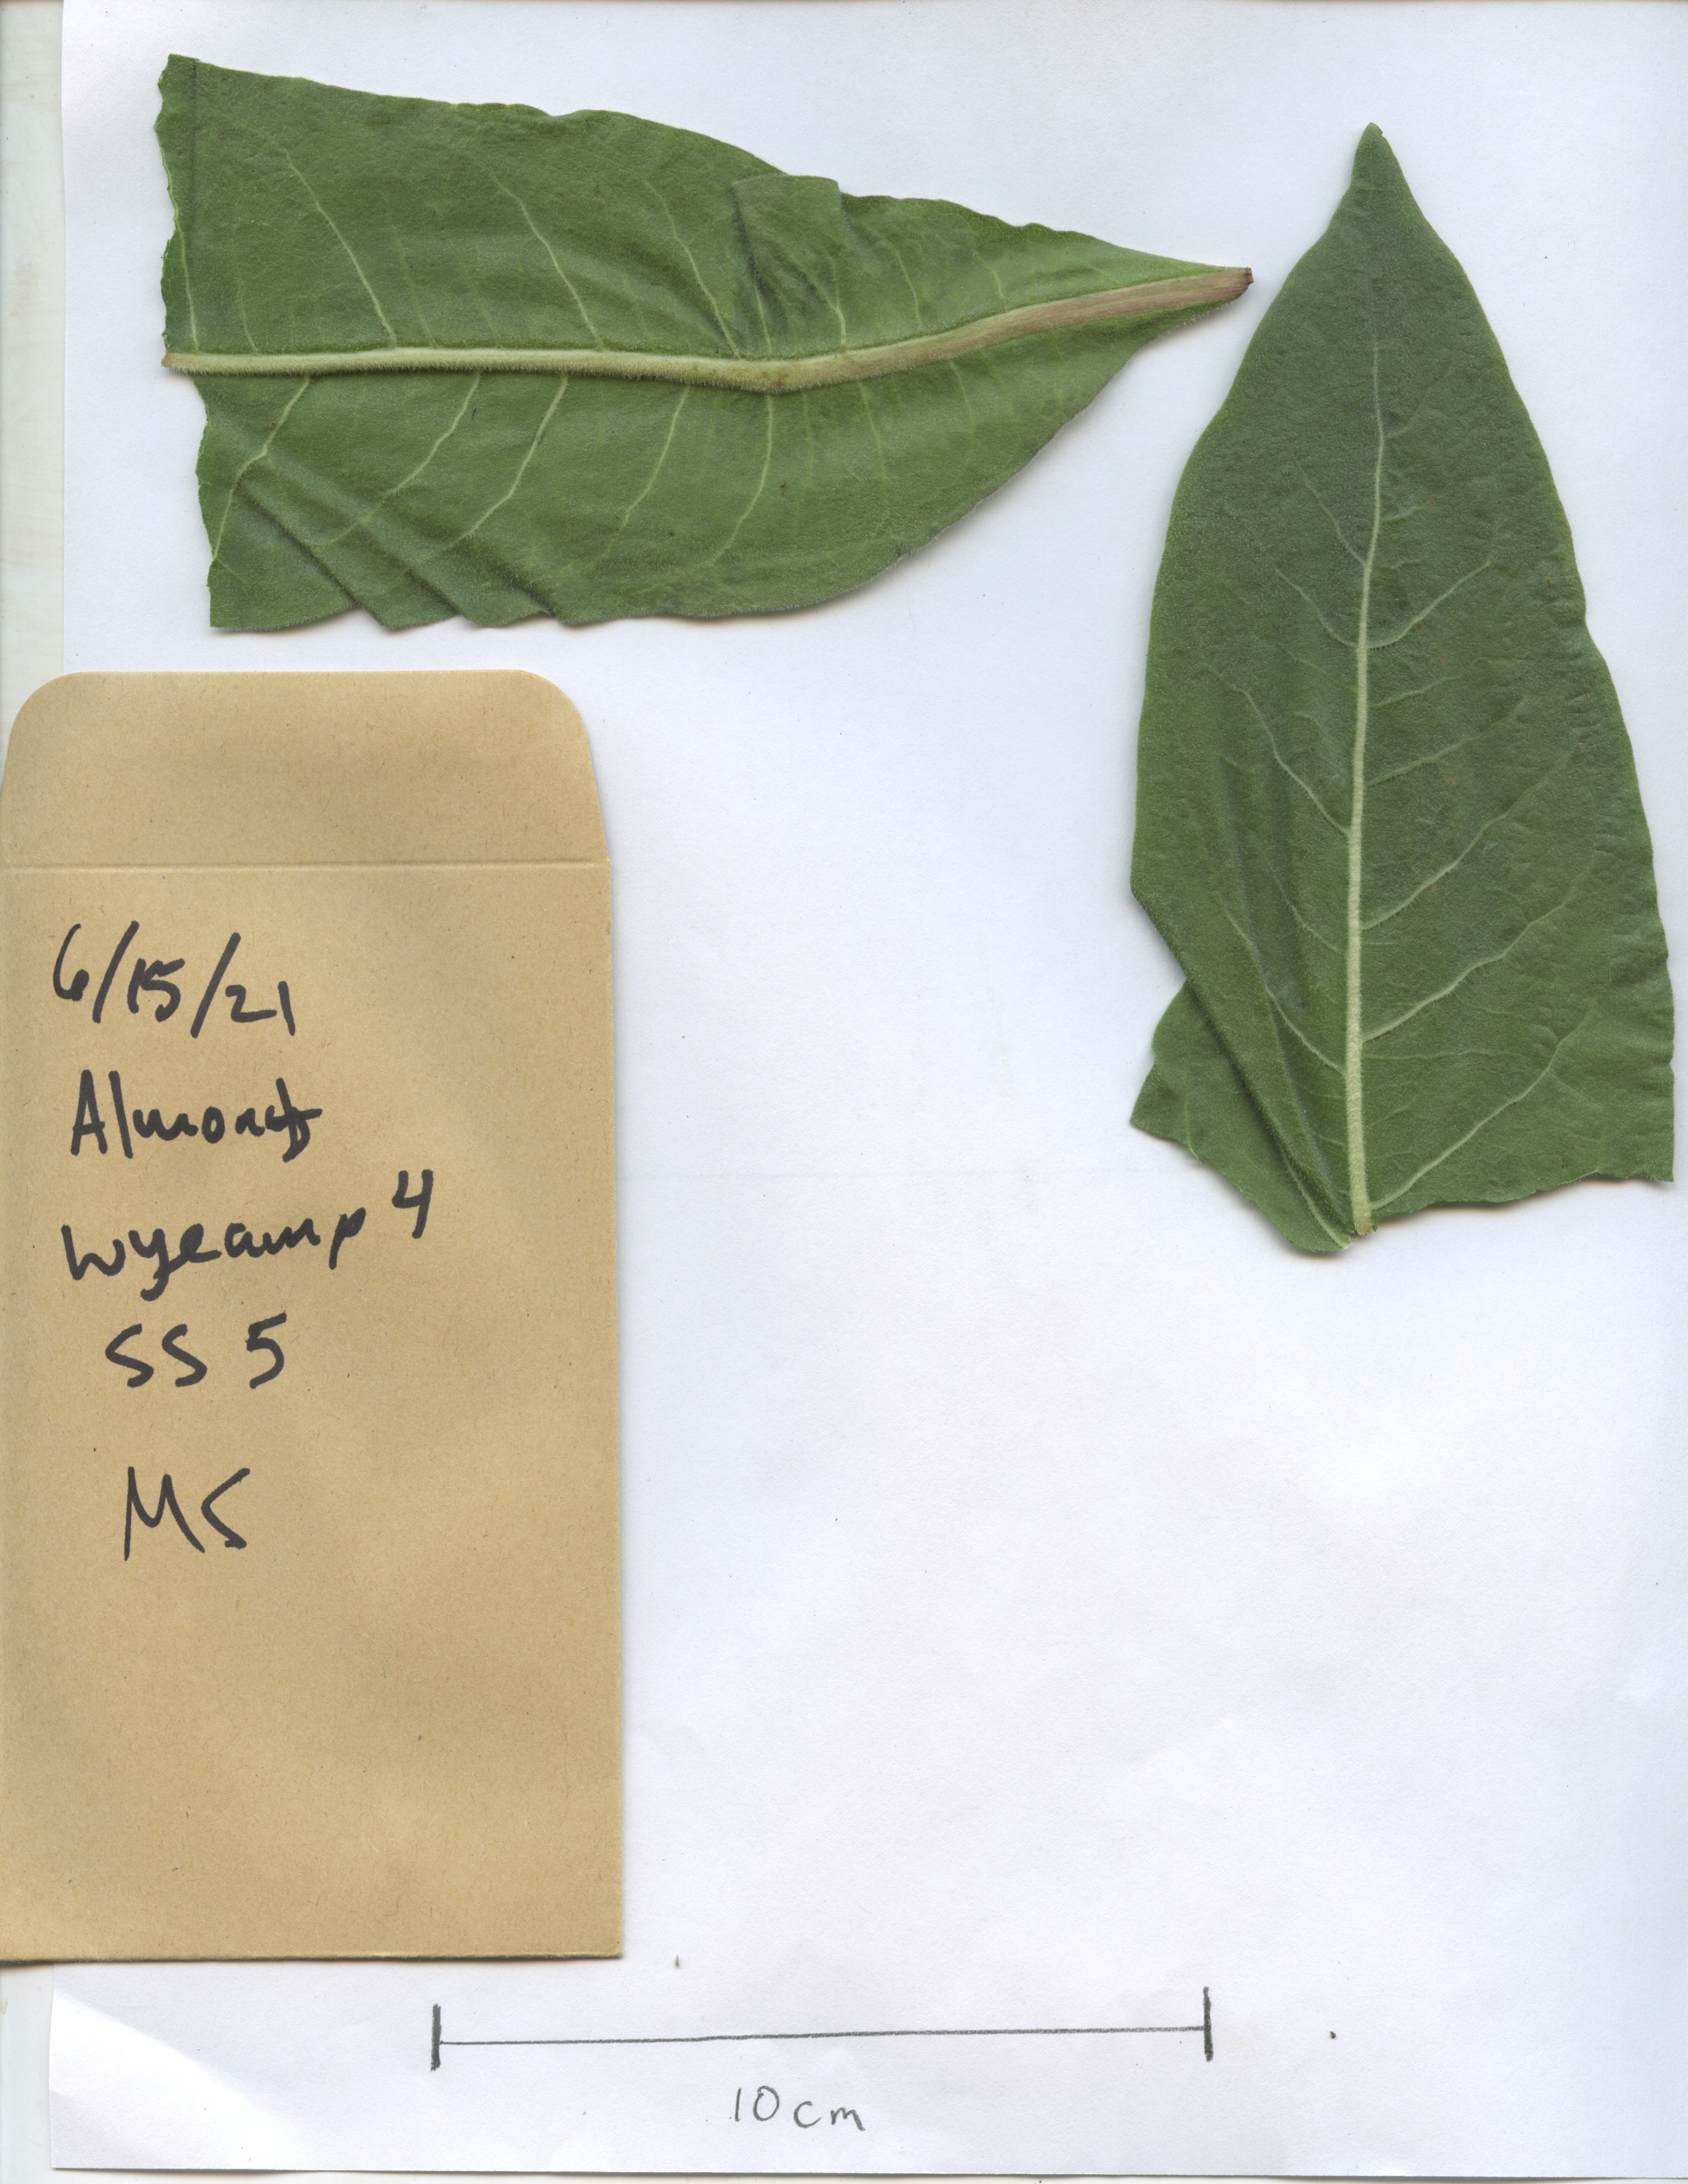 6/15/21
Almont
wyeamp 4
SS 5
MS
10cm